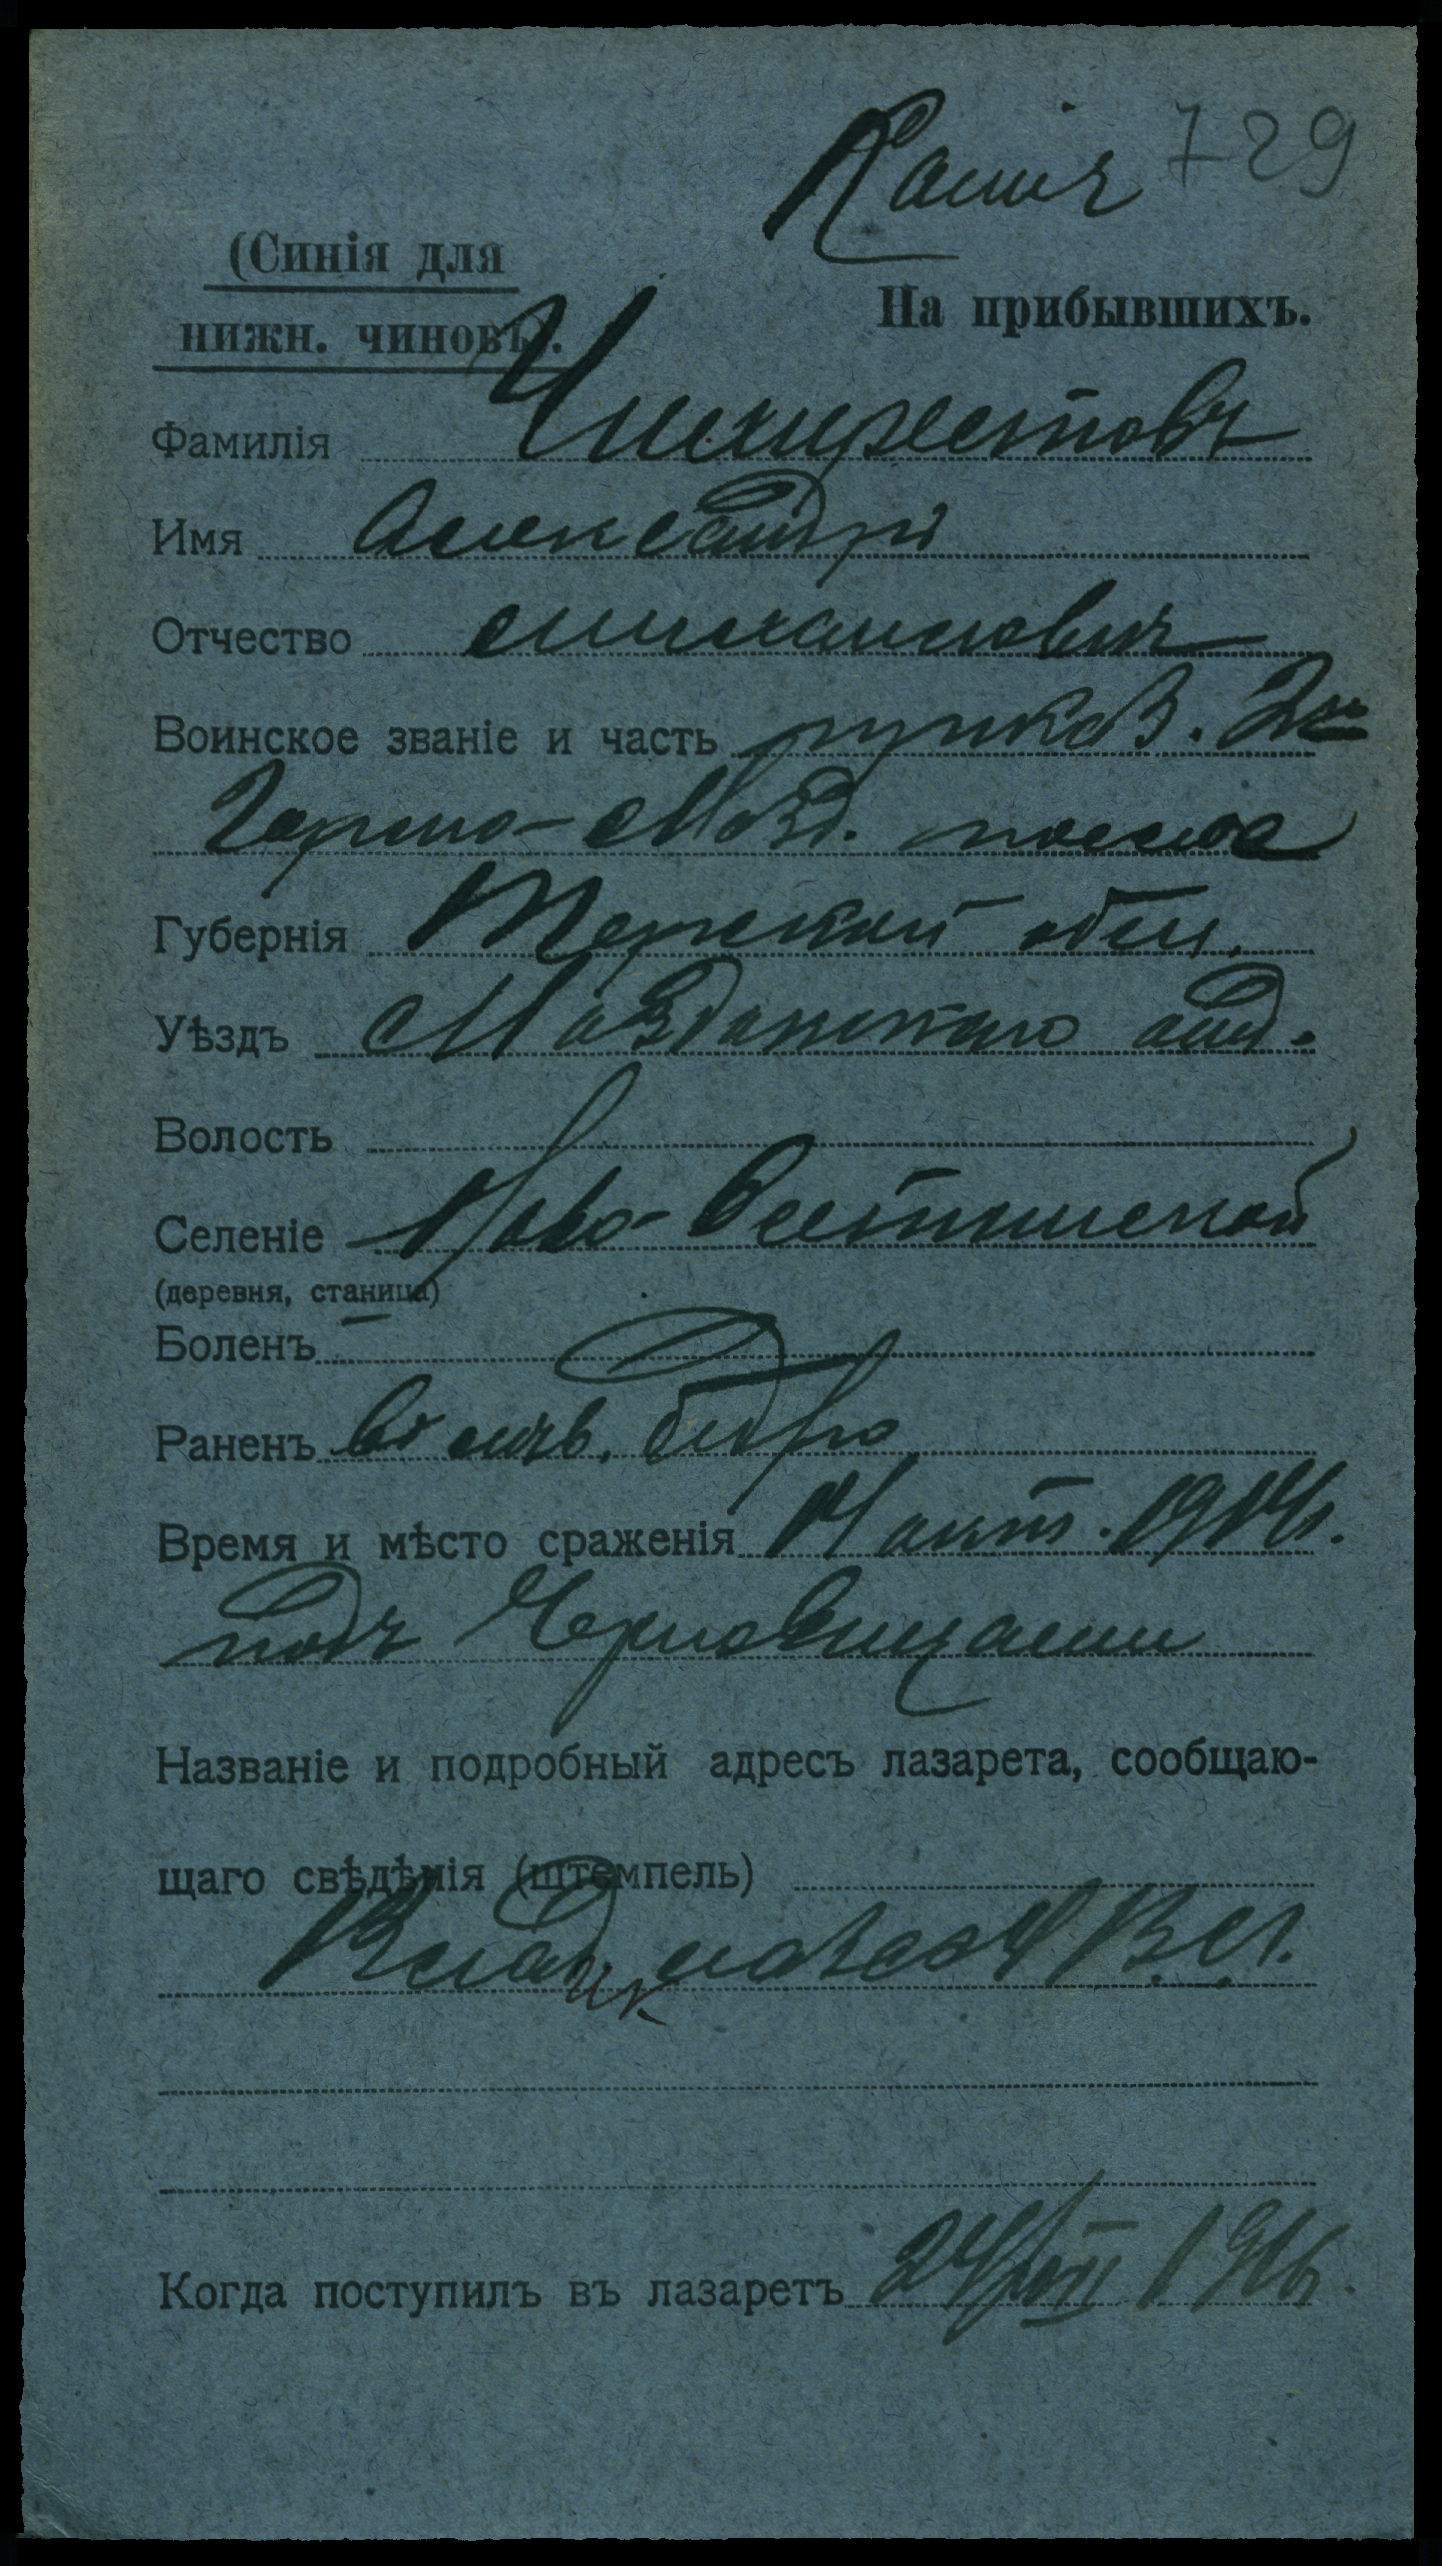 729
(Синія для
нижн. чиновъ).
На прибывшихъ.
Фамилія Чихирестовъ
Имя Александръ
Отчество Михаиловичъ
Воинское званіе и часть приказ. 2го
Горско-Мозд. полка
Губернія Терской обл.
Уѣздъ Моздокскаго отд.
Волость
Селеніе Ново-Осетинской
(деревня, станица)
Боленъ —
Раненъ въ лѣв. бедро
Время и мѣсто сраженія 14 окт. 1914 г.
подъ Черновицами
Названіе и подробный адресъ лазарета, сообщаю-
щаго свѣдѣнія (штемпель)
Владик
Когда поступилъ въ лазаретъ